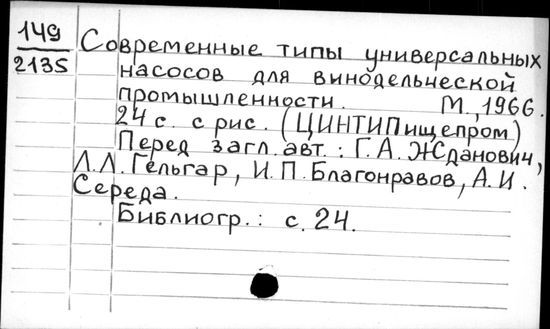 149
2135
Современные типы универсальных
насосов для винодельческой
промышленности. М., 1966.
24 с. с рис. (ЦИНТИПищепром)
Перед загл. авт.: Г.А. Жданович,
Л.Л. Гельгар, И.П. Благонравов, А.И.
Середа.
Библиогр.: с. 24.